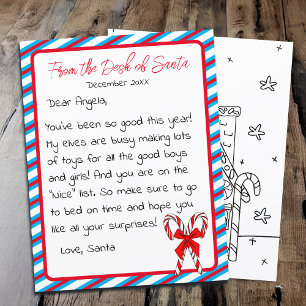 From the Desk of Santa
December 20XX
Dear Angela,
You've been so good this year!
My elves are busy making lots
of toys for all the good boys
and girls! And you are on the
"Nice" list. So make sure to go
to bed on time and hope you
like all your surprises!
Love, Santa